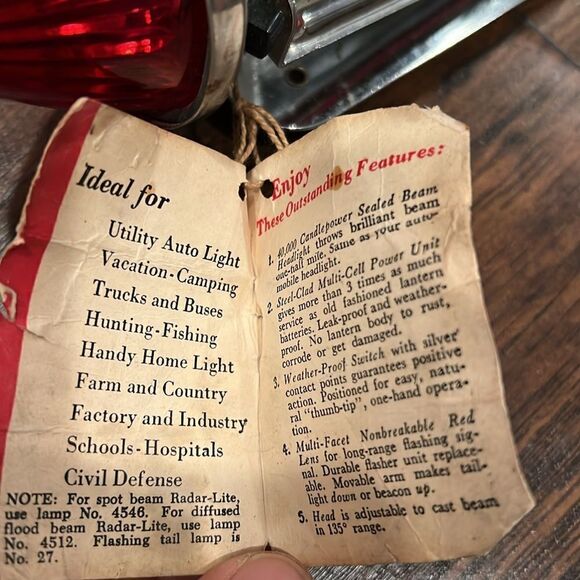 Ideal for
Utility Auto Light
Vacation-Camping
Trucks and Buses
Hunting-Fishing
Handy Home Light
Farm and Country
Factory and Industry
Schools-Hospitals
Civil Defense
NOTE: For spot beam Radar-Lite,
use lamp No. 4546. For diffused
flood beam Radar-Lite, use lamp
No. 4512. Flashing tail lamp is
No. 27.
Enjoy
These Outstanding Features:
1. 40,000 Candlepower Sealed Beam
Headlight throws brilliant beam
one-half mile. Same as your auto-
mobile headlight.
2. Steel-Clad Multi-Cell Power Unit
gives more than 3 times as much
service as old fashioned lantern
batteries. Leak-proof and weather-
proof. No lantern body to rust,
corrode or get damaged.
3. Weather-Proof Switch with silver
contact points guarantees positive
action. Positioned for easy, natu-
ral "thumb-tip", one-hand opera-
tion.
4. Multi-Facet Nonbreakable Red
Lens for long-range flashing sig-
nal. Durable flasher unit replace-
able. Movable arm makes tail-
light down or beacon up.
5. Head is adjustable to cast beam
in 135° range.